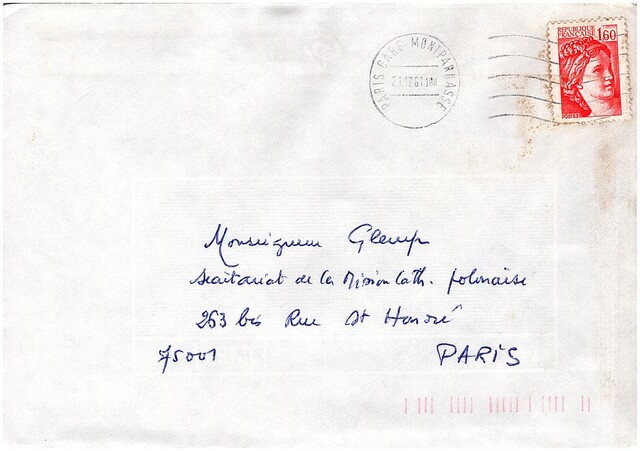 PARIS GARE MONTPARNASSE
21.12.81 18H
REPUBLIQUE
FRANÇAISE
1,60
POSTES
Monseigneur Glemp
Secrétariat de la Mission Cath. polonaise
263 bis Rue St Honoré
75001 PARIS